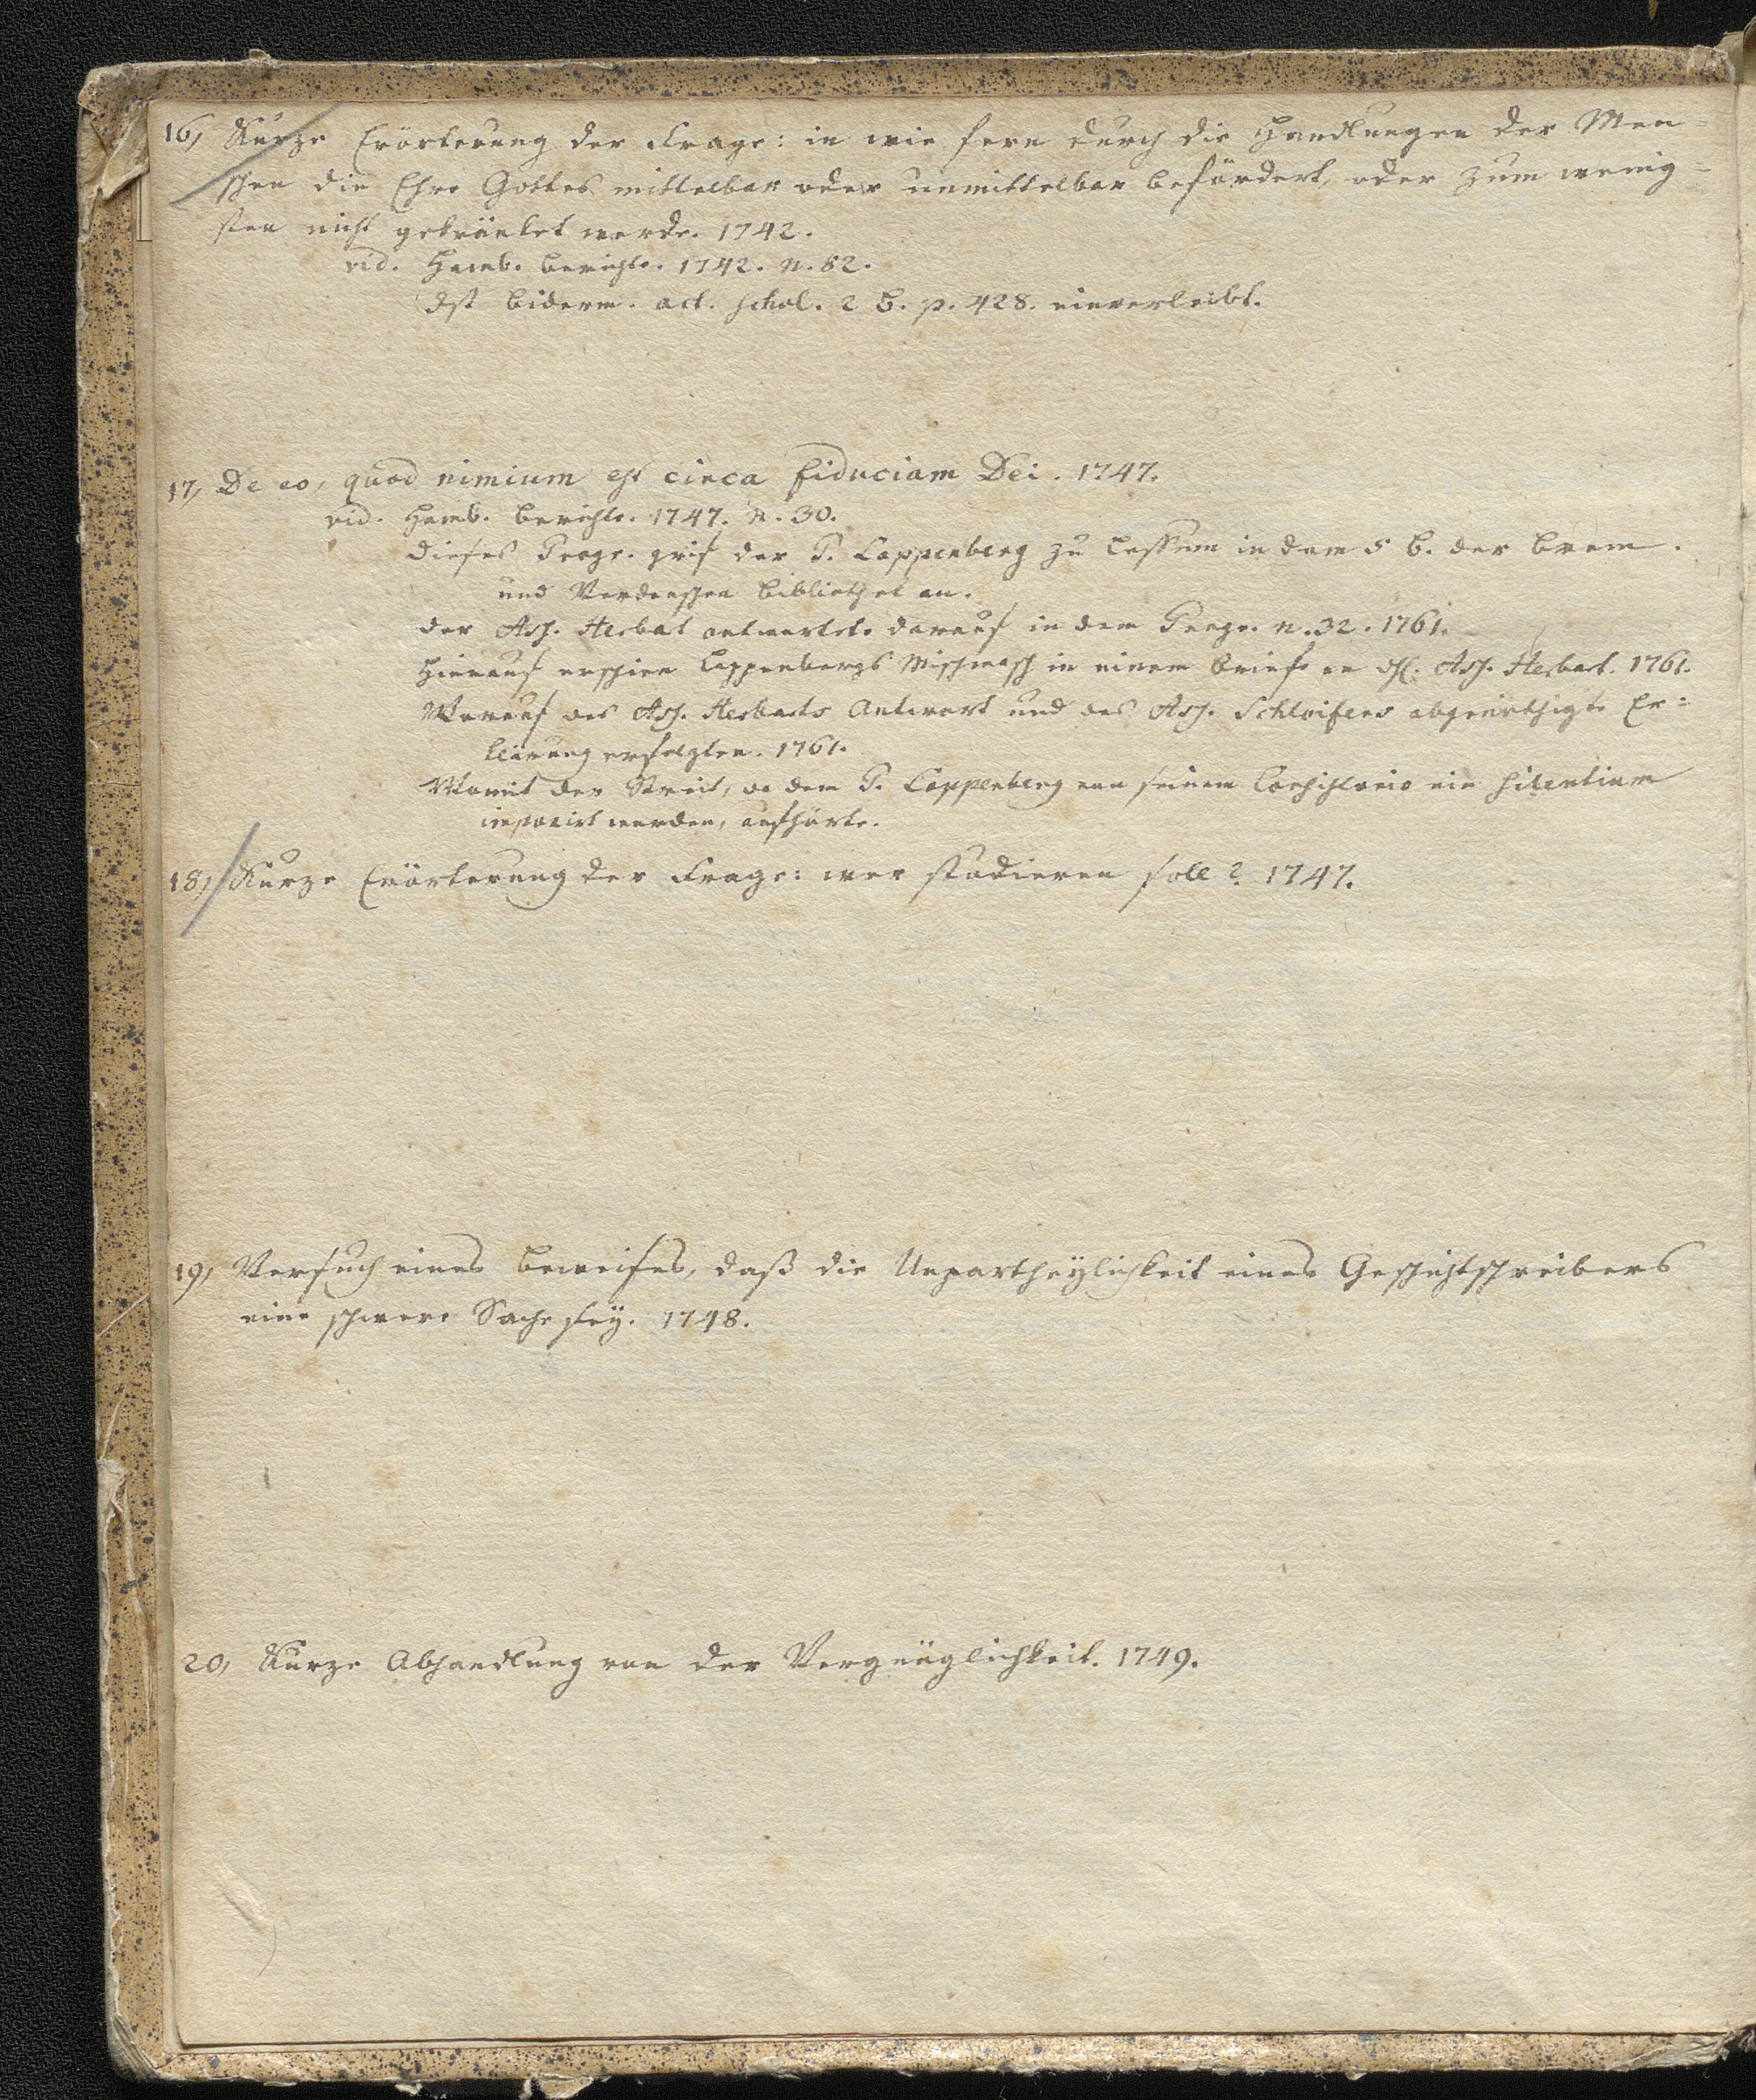 16, Kurze Erörterung der Frage: in wie fern durch die Handlungen der Men=
schen die Ehre Gottes mittelbar oder unmittelbar befördert, oder zum wenig=
sten nicht gekränket werde. 1742.
vid. Hamb. berichte. 1742. n. 82.
Ist biderm. act. schol. 2 b. p. 428. einverleibt.
17, De eo, quod nimium est circa fiduciam Dei. 1747.
vid. Hamb. berichte. 1747. n. 30.
Dieses Progr. grif der P. Lappenberg zu Lessum in dem 5 b. der brem.
und Verdenschen bibliothek an.
der Ass. Herbart antwortete darauf in dem Progr. n. 32. 1761.
Hierauf erschien Lappenbergs Mischmasch in einem briefe an H. Ass. Herbart. 1761.
Worauf des Ass. Herbarts Antwort und des Ass. Schloifers abgenöthigte Er=
klärung erfolgten. 1761.
Womit der Streit, da dem P. Lappenberg von seinem Consistorio ein silentium
imponirt worden, aufhörte.
18, Kurze Erörterung der Frage: wer studieren soll? 1747.
19, Versuch eines beweises, daß die Unpartheylichkeit eines Geschichtschreibers
eine schwere Sache sey. 1748.
20, Kurze Abhandlung von der Vergnüglichkeit. 1749.